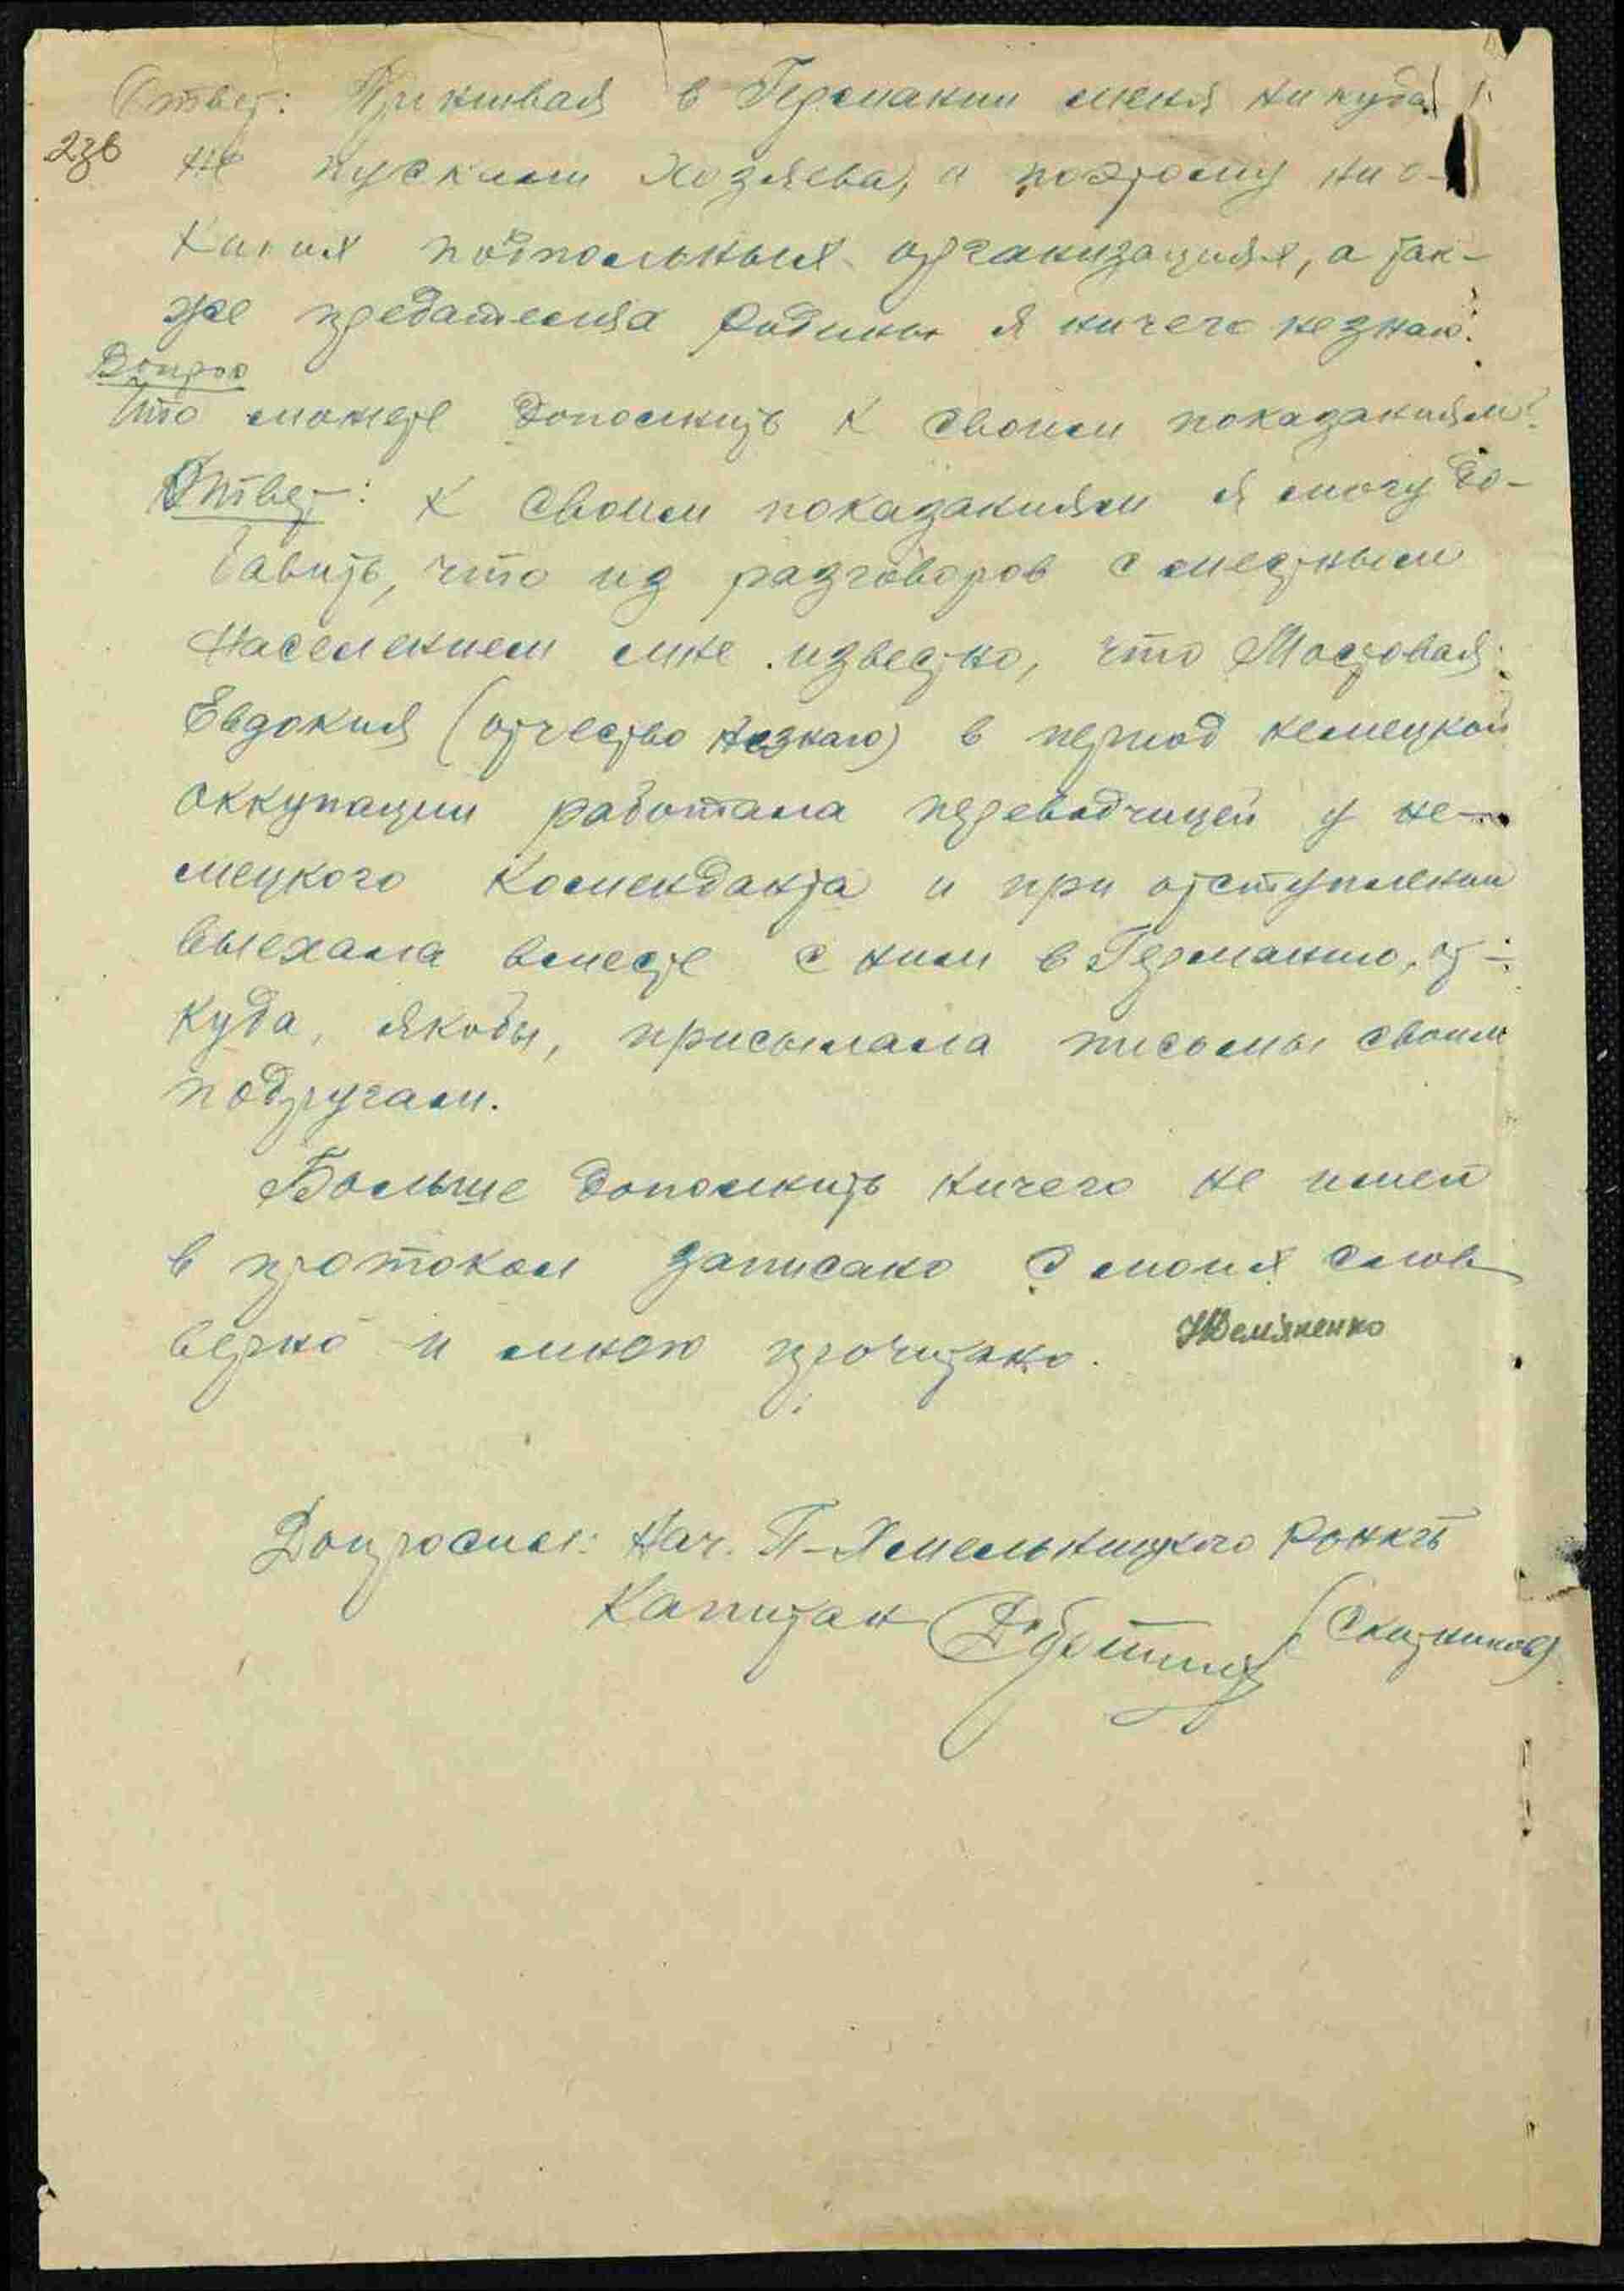 Ответ: Проживая в Германии меня никуда
23в
не пускали хозяева, и поэтому ни о
каких подпольных организациях, а так-
же предателях Родины я ничего незнаю.
Вопрос
Что можете дополнить к своим показаниям?
Ответ: К своим показаниям я могу до-
бавить, что из разговоров с местным
населением мне известно, что Мостовая
Евдокия (отчество незнаю) в период немецкой
оккупации работала переводчицей у не-
мецкого коменданта и при отступлении
выехала вместе с ним в Германию, от-
куда, якобы, присылала письмы своим
подругам.
Больше дополнить ничего не имею
в протокол записано с моих слов
верно и мною прочитано. Демяненко
Допросил: Нач. П-Хмельницкого РОНКГБ
Капитан (Скитников)